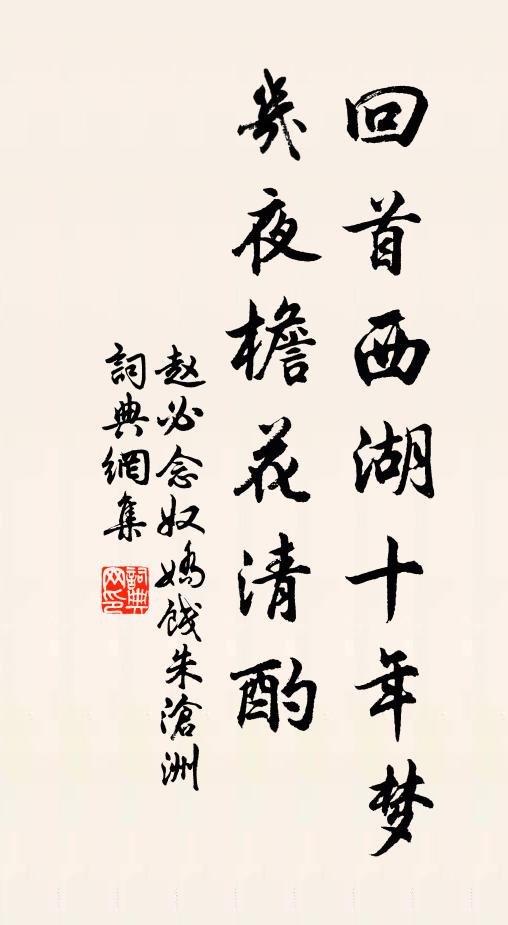 回首西湖十年梦
几夜檐花清酌
赵必念奴娇饯朱沧洲
詞典網集
詞典网印